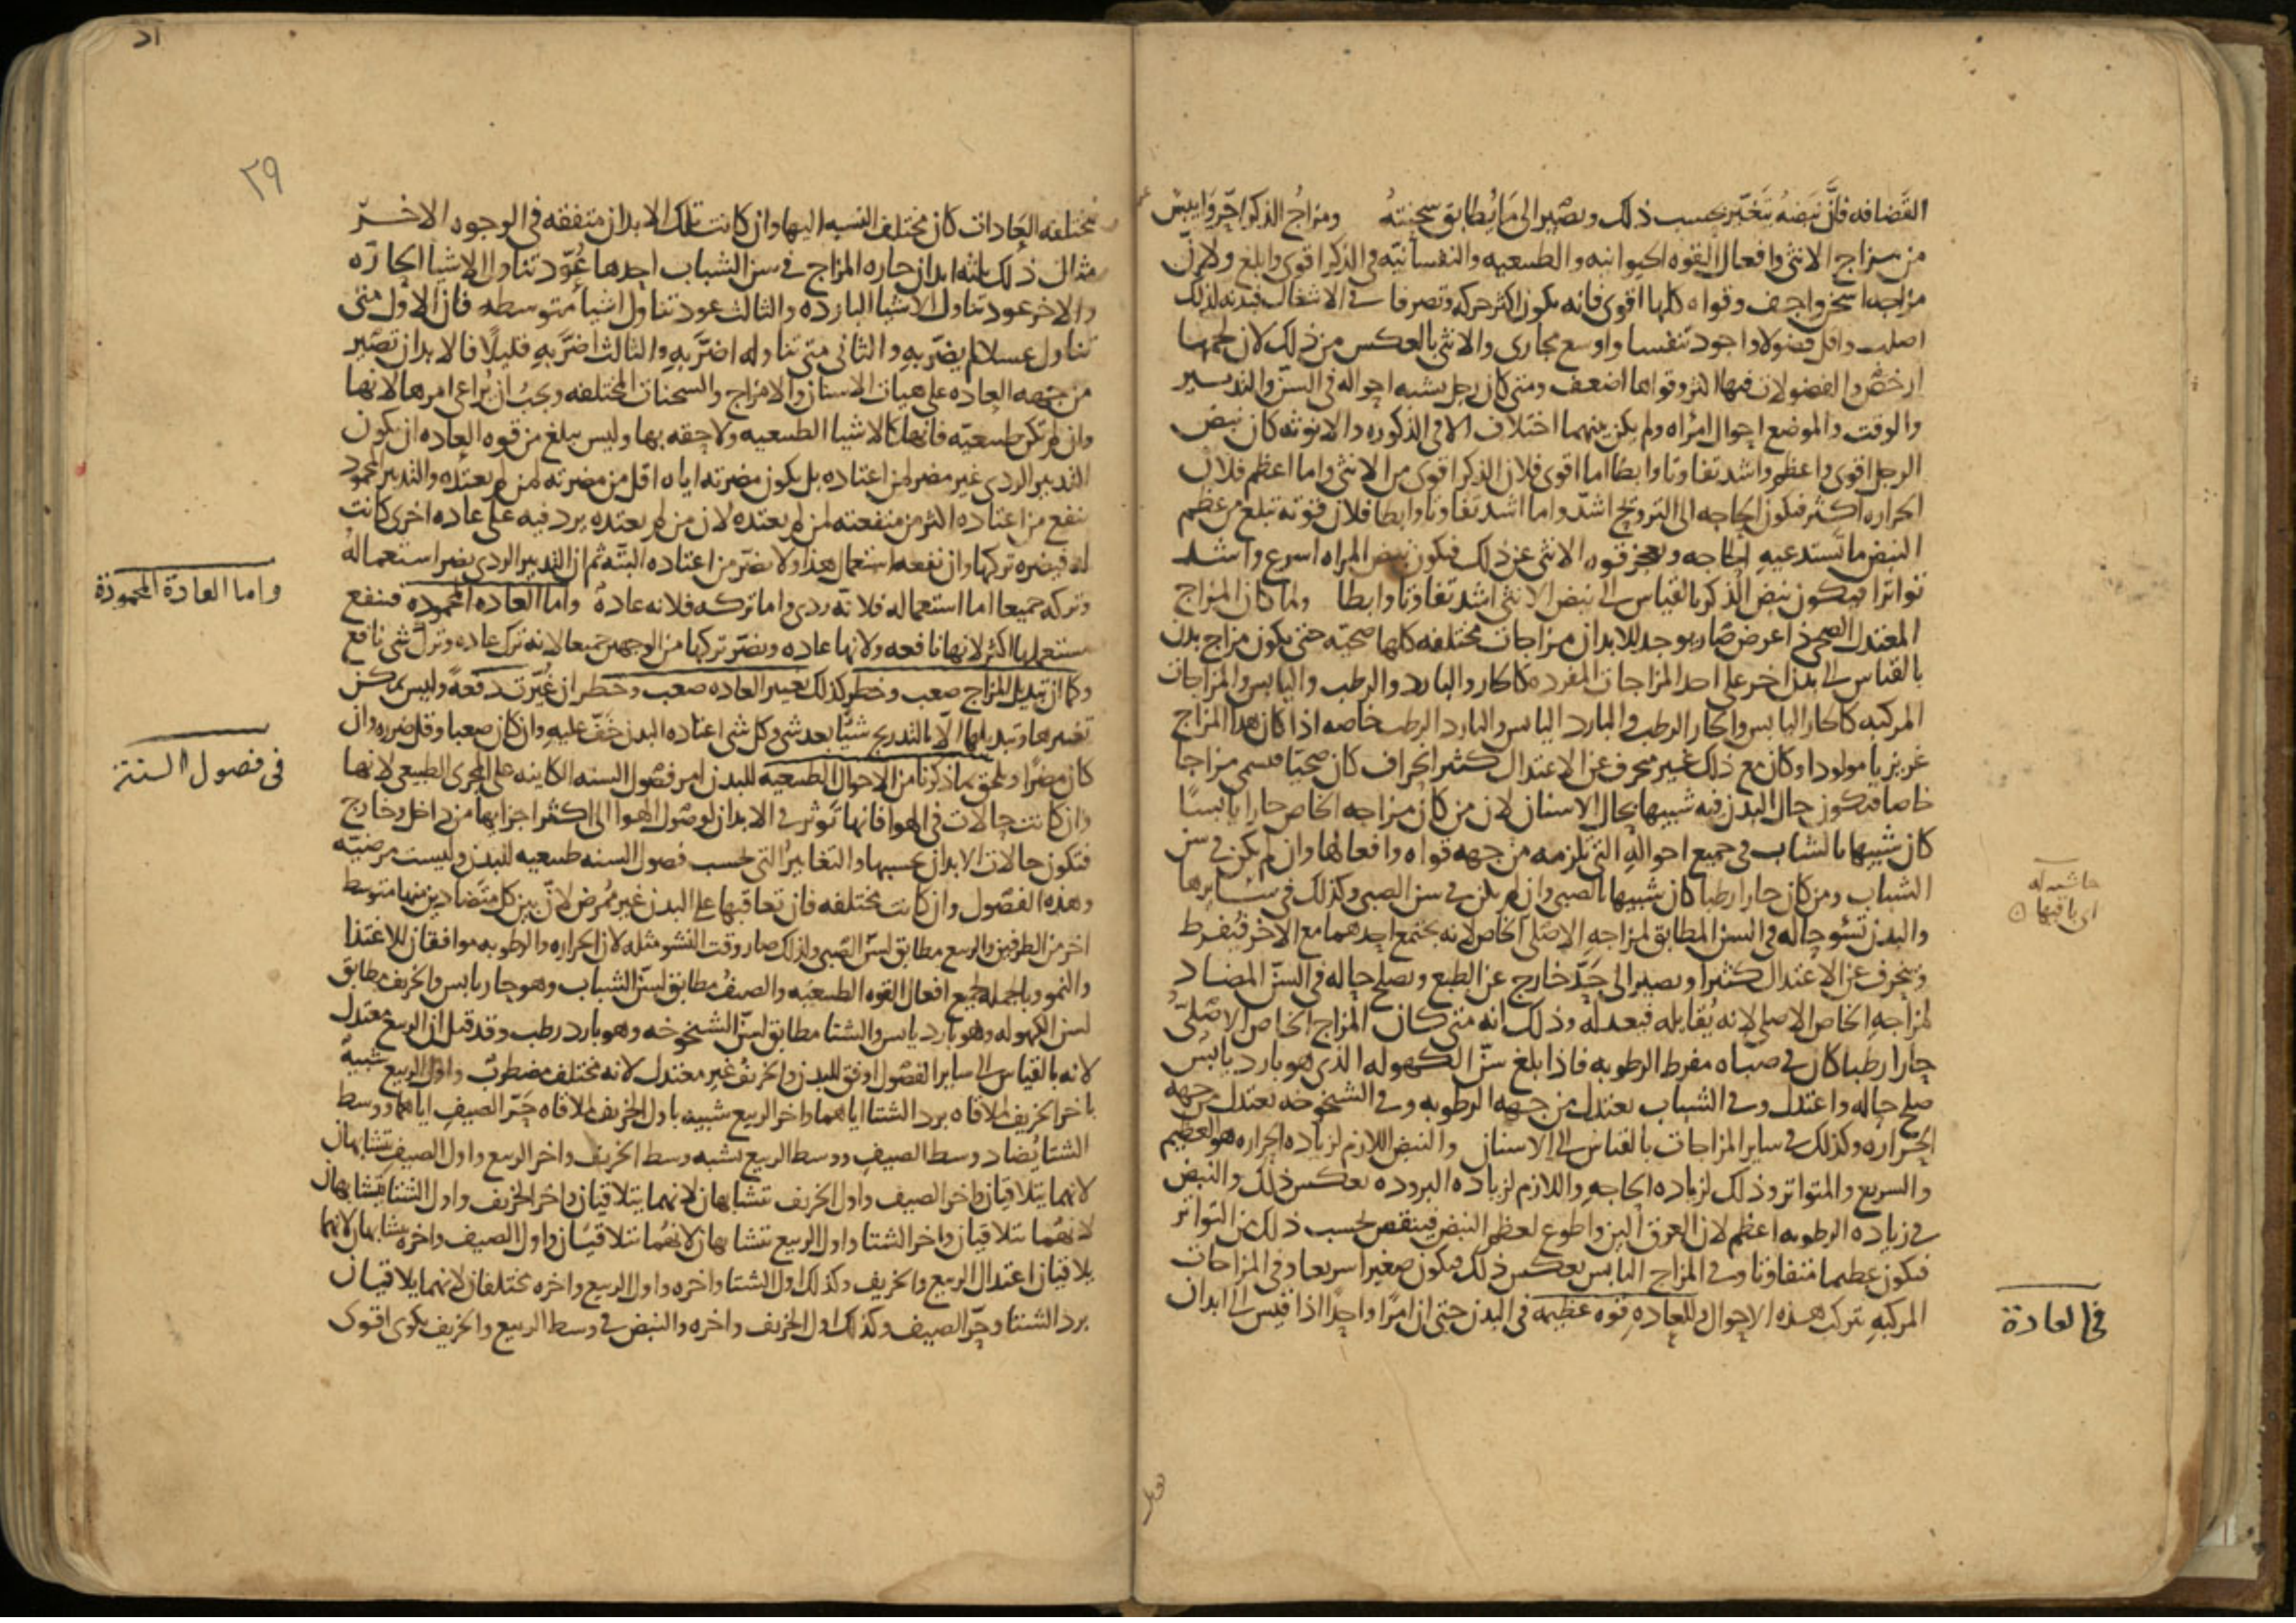 القضافه فان نبضه يتغير بحسب ذلك ويصير الى ما يطابق سحنته ومزاج الذكر احر وايبس
من مزاج الانثى وافعال القوه الحيوانيه والطبيعيه والنفسانيه في الذكر اقوى وابلغ ولان
مزاجه اسخن واجف وقواه كلها اقوى فانه يكون اكثر حركه وتصرفا في الاشغال فبدنه لذلك
اصلب واقل فضولا واجود تنفسا واوسع مجارى والانثى بالعكس من ذلك لان لحمها
ارخص والفضولات فيها اكثر وقواها اضعف ومتى كان رجل يشبه احواله في السن والتدبير
والوقت والموضع احوال امراه ولم يكن بينهما اختلاف الا في الذكوره والانوثه كان نبض
الرجل اقوى واعظم واشد تفاوتا وابطا اما اقوى فلان الذكر اقوى من الانثى واما اعظم فلان
الحراره اكثر فيكون الحاجه الى الترويح اشد واما اشد تفاوتا وابطا فلان قوته تبلغ من عظم
النبض ما تستدعيه الحاجه وتعجز قوه الانثى عن ذلك فيكون نبض المراه اسرع واشد
تواترا فيكون نبض الذكر بالقياس الى نبض الانثى اشد تفاوتا وابطا ولما كان المزاج
المعتدل الصحي ذا عرض صار يوجد للابدان مزاجات مختلفه كلها صحيه حتى يكون مزاج بدن
بالقياس الى بدن اخر على احد المزاجات المفرده كالحار والبارد والرطب واليابس والمزاجات
المركبه كالحار اليابس والحار الرطب والبارد اليابس والبارد الرطب خاصه اذا كان هذا المزاج
غريزيا مولودا وكان مع ذلك غير منحرف عن الاعتدال كثير انحراف كان صحيا فسمى مزاجا
خاصا فيكون حال البدن فيه شبيها بحال الاسنان لان من كان مزاجه الخاص حارا يابسا
كان شبيها بالشاب في جميع احواله التي تلزمه من جهه قواه وافعالها وان لم يكن في سن
الشباب ومن كان حارا رطبا كان شبيها بالصبي وان لم يكن في سن الصبي وكذلك في سايرها
حاشيه له
اى باقيها
والبدن تسؤ حاله في السن المطابق لمزاجه الاصلى الخاص لانه يجتمع احدهما مع الاخر فيفرط
وينحرف عن الاعتدال كثيرا ويصير الى حد خارج عن الطبع ويصلح حاله في السن المضاد
لمزاجه الخاص الاصلي لانه يقابله فيعدله وذلك انه متى كان المزاج الخاص الاصلى
حارا رطبا كان في صباه مفرط الرطوبه فاذا بلغ سن الكهوله الذى هو بارد يابس
صلح حاله واعتدل وفي الشباب يعتدل من جهه الرطوبه وفي الشيخوخه يعتدل من جهه
الحراره وكذلك في ساير المزاجات بالقياس الى الاسنان والنبض اللازم لزياده الحراره هو العظيم
والسريع والمتواتر وذلك لزياده الحاجه واللازم لزياده البروده بعكس ذلك والنبض
في زياده الرطوبه اعظم لان العرق الين واطوع لعظم النبض فينقص بحسب ذلك من التواتر
فيكون عظيما متفاوتا وفي المزاج اليابس بعكس ذلك فيكون صغيرا سريعا وفي المزاجات
المركبه تتركب هذه الاحوال وللعاده قوه عظيمه في البدن حتى ان امرا واحدا اذا قيس الى ابدان
في العادة
٢٩
مختلفه العادات كان مختلف النسبه اليها وان كانت تلك الابدان متفقه في الوجوه الاخر
مثال ذلك ثلثه ابدان حاره المزاج في سن الشباب احدها عود تناول الاشيا الحاره
والاخر عود تناول الاشيا البارده والثالث عود تناول اشيا متوسطه فان الاول متى
تناول عسلا لم يضر به والثاني متى تناوله اضر به والثالث اضر به قليلا فالابدان تصير
من جهه العاده على هيات الاسنان والامزاج والسحنات المختلفه ويجب ان يراعى امرها لانها
وان لم تكن طبيعيه فانها كالاشيا الطبيعيه ولاحقه بها وليس يبلغ من قوه العاده ان يكون
التدبير الردى غير مضر لمن اعتاده بل يكون مضرته اياه اقل من مضرته لمن لم يعتده والتدبير المحمود
ينفع من اعتاده اكثر من منفعته لمن لم يعتده لان من لم يعتده يرد فيه على عاده اخرى كانت
له فيضره تركها وان نفعه استعمال هذا ولا يضر من اعتاده البته ثم ان التدبير الردى يضر استعماله
وتركه جميعا اما استعماله فلانه ردى واما تركه فلانه عاده واما العاده المحموده فينفع
واما العادة المحمودة
مستعملها اكثر لانها نافعه ولانها عاده ويضر تركها من الوجهين جميعا لانه ترك عاده وترك شى نافع
وكما ان تبديل المزاج صعب وخطر كذلك تغيير العاده صعب وخطر ان غيرت دفعه وليس يمكن
تغييرها وتبديلها الا بالتدريج شيا بعد شى وكل شى اعتاده البدن خف عليه وان كان صعبا وقل ضرره وان
كان مضرا ويلحق بما ذكرنا من الاحوال الطبيعيه للبدن امر فصول السنه الكاينه على المجرى الطبيعي لانها
في فصول السنة
وان كانت حالات في الهوا فانها توثر في الابدان لوصول الهوا الى اكثر اجزايها من داخل وخارج
فتكون حالات الابدان بحسبها والتغايير التي بحسب فصول السنه طبيعيه للبدن وليست مرضيه
وهذه الفصول وان كانت مختلفه فان تعاقبها على البدن غير ممرض لان بين كل متضادين منها متوسط
اخر من الطرفين والربيع مطابق لسن الصبي ولذلك صار وقت النشو مثله لان الحراره والرطوبه موافقان للاغتذا
والنمو وبالجمله لجميع افعال القوه الطبيعيه والصيف مطابق لسن الشباب وهو حار يابس والخريف مطابق
لسن الكهوله وهو بارد يابس والشتا مطابق لسن الشيخوخه وهو بارد رطب وقد قيل ان الربيع معتدل
لانه بالقياس الى ساير الفصول اوفق للبدن والخريف غير معتدل لانه مختلف مضطرب واول الربيع شبيه
باخر الخريف لملاقاه برد الشتا اياهما واخر الربيع شبيه باول الخريف لملاقاه حر الصيف اياهما ووسط
الشتا يضاد وسط الصيف ووسط الربيع يشبه وسط الخريف واخر الربيع واول الصيف يتشابهان
لانهما يتلاقيان واخر الصيف واول الخريف يتشابهان لانهما يتلاقيان واخر الخريف واول الشتا يتشابهان
لانهما يتلاقيان واخر الشتا واول الربيع يتشابهان لانهما يتلاقيان واول الصيف واخره يتشابهان لانهما
يلاقيان اعتدال الربيع والخريف وكذلك اول الشتا واخره واول الربيع واخره مختلفان لانهما يلاقيان
برد الشتا وحر الصيف وكذلك اول الخريف واخره والنبض في وسط الربيع والخريف يكون اقوى